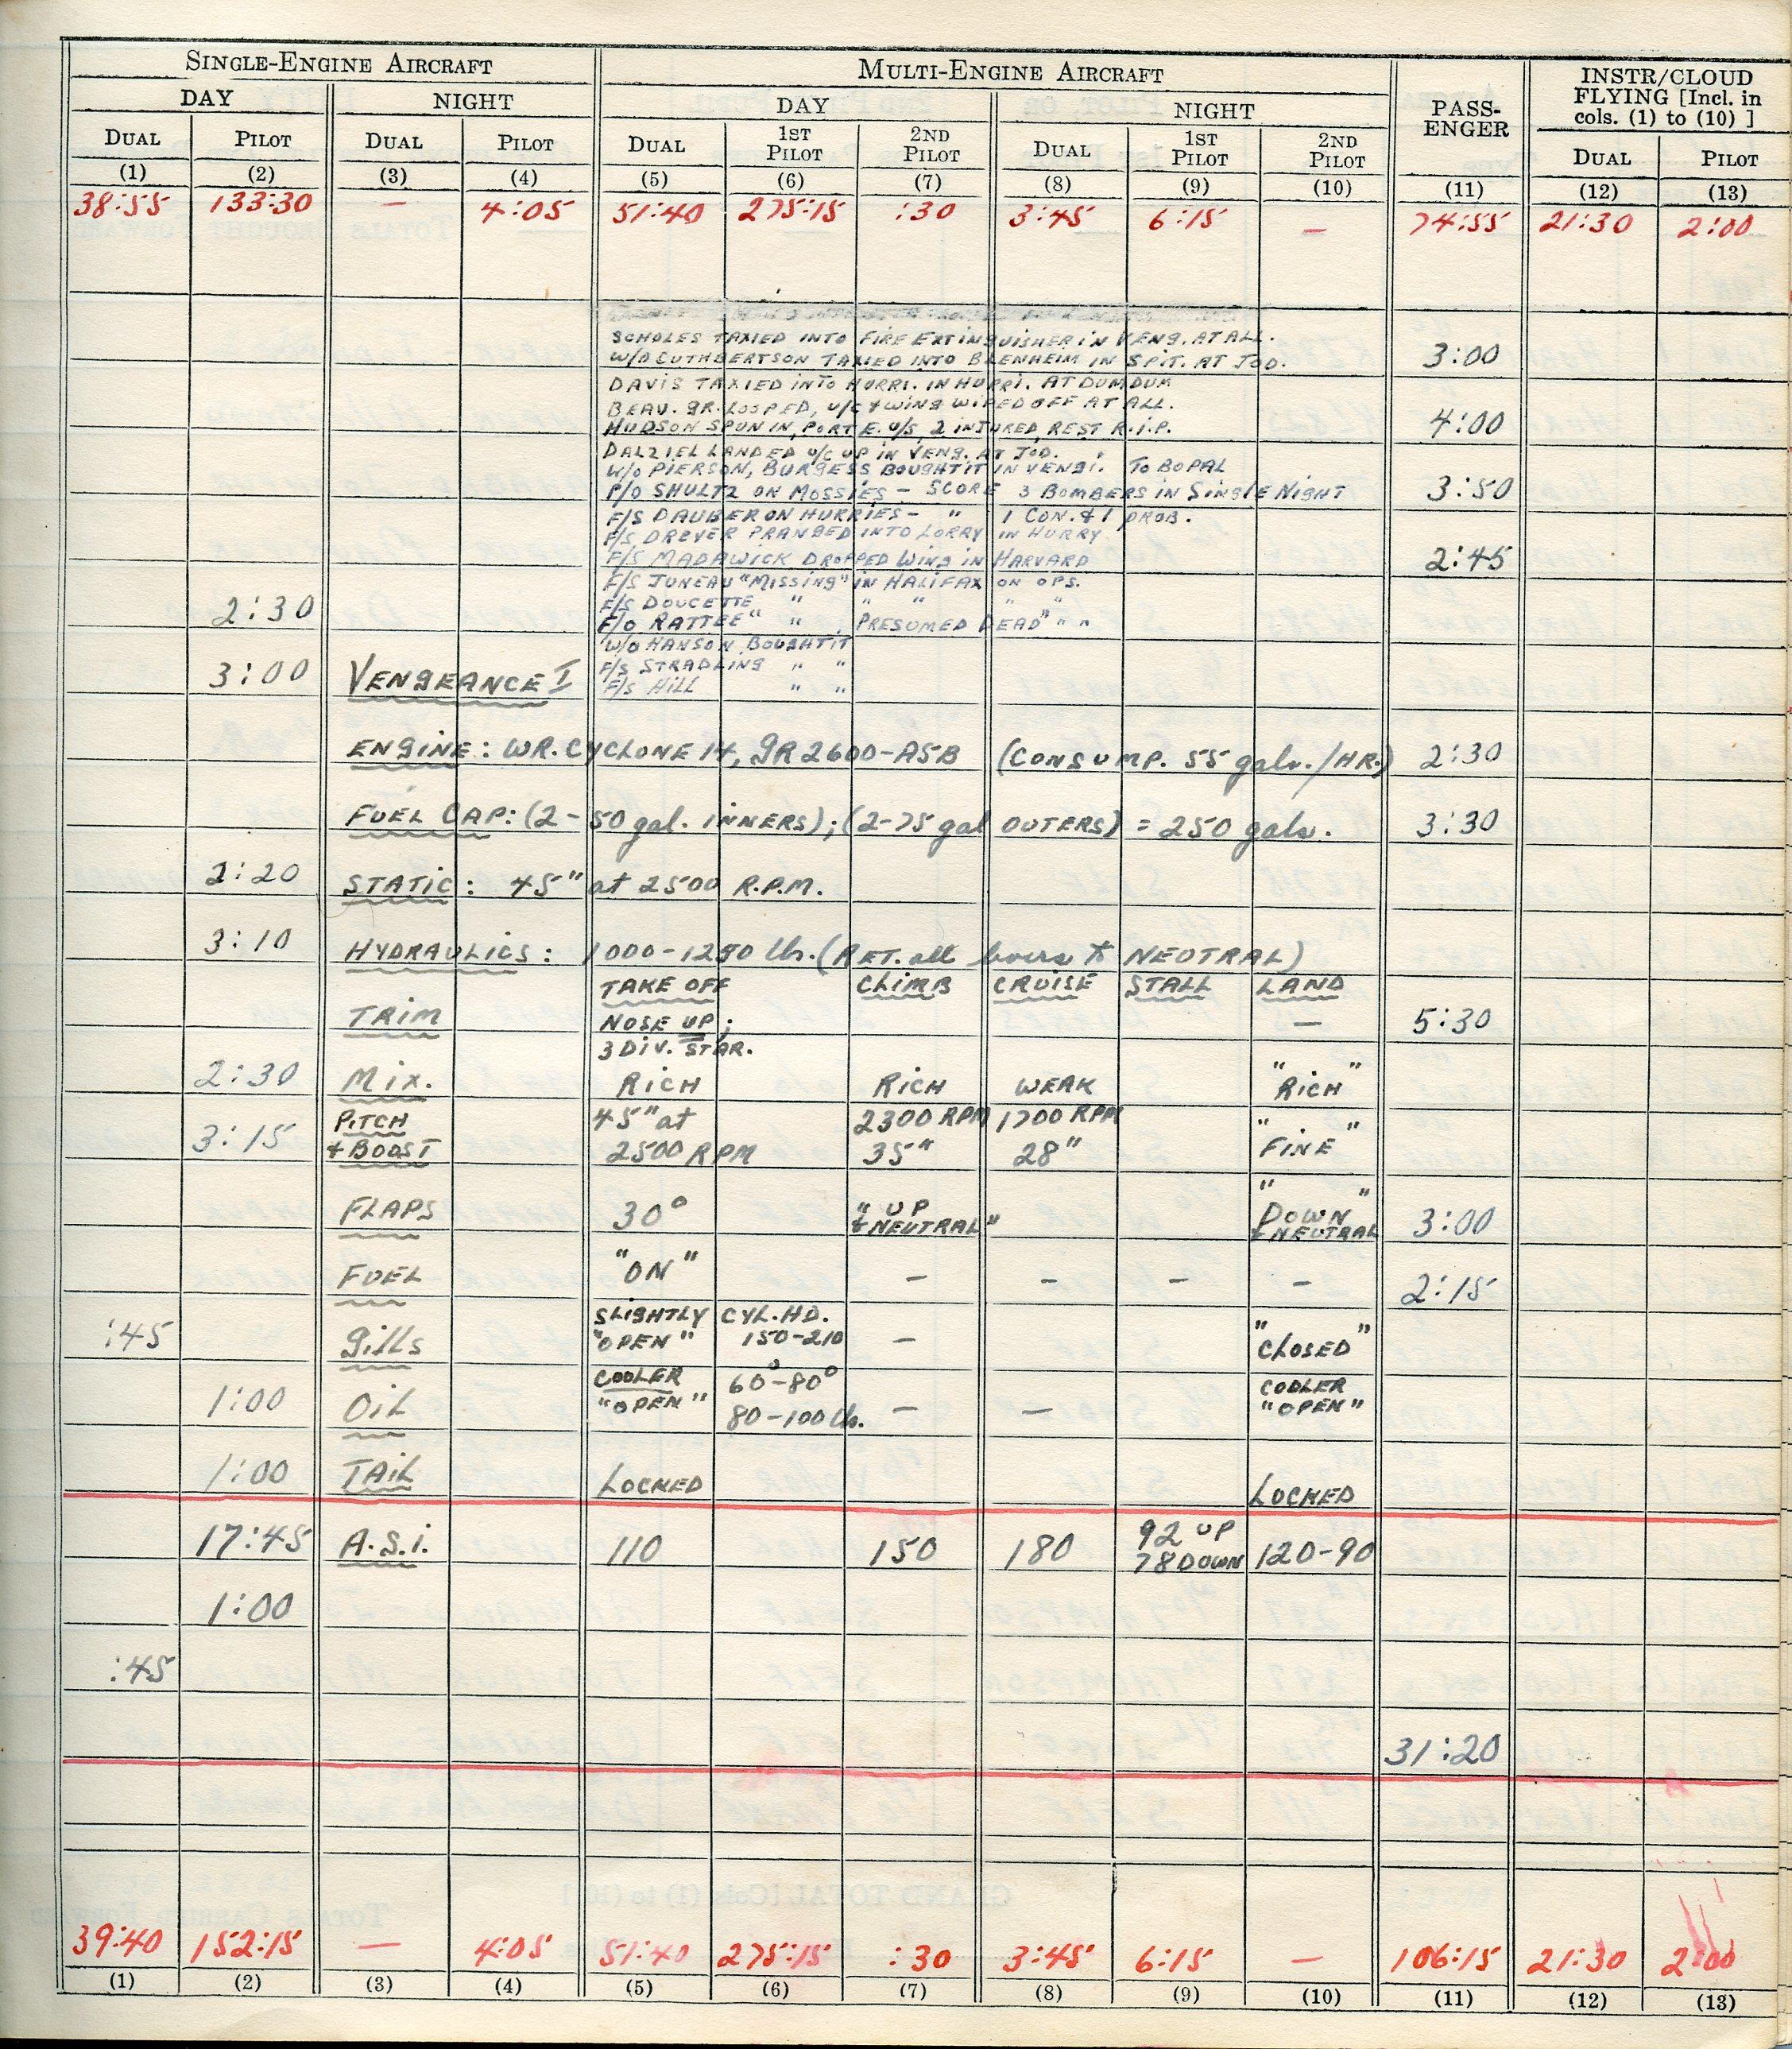 SINGLE-ENGINE AIRCRAFT MULTI-ENGINE AIRCRAFT PASS-ENGER INSTR/CLOUD FLYING [Incl. in cols. (1) to (10) ]
DAY NIGHT DAY NIGHT
DUAL PILOT DUAL PILOT DUAL 1ST PILOT 2ND PILOT DUAL 1ST PILOT 2ND PILOT DUAL PILOT
(1) (2) (3) (4) (5) (6) (7) (8) (9) (10) (11) (12) (13)
38:55 133:30 — 4:05 51:40 275:15 :30 3:45 6:15 — 74:55 21:30 2:00
SCHOLES TAXIED INTO FIRE EXTINGUISHER IN VENG. AT ALL.
W/O CUTHBERTSON TAXIED INTO BLENHEIM IN SPIT. AT JOD. 3:00
DAVIS TAXIED INTO HURRI. IN HURRI. AT DUMDUM
BEAU. GR. LOOPED, U/C & WING WIPED OFF AT ALL.
HUDSON SPUN IN, PORT E. U/S, 2 INJURED, REST R.I.P. 4:00
DALZIEL LANDED U/C UP IN VENG. AT JOD.
W/O PIERSON, BURGESS BOUGHT IT IN VENGI. TO BOPAL
P/O SHULTZ ON MOSSIES — SCORE 3 BOMBERS IN SINGLE NIGHT 3:50
F/S DAUBER ON HURRIES — " 1 CON. & 1 PROB.
F/S DREVER PRANGED INTO LORRY IN HURRY
F/S MADAWICK DROPPED WING IN HARVARD 2:45
F/S JUNEAU "MISSING" IN HALIFAX ON OPS.
F/S DOUCETTE " " " " "
2:30 F/O RATTEE " " PRESUMED DEAD" " "
W/O HANSON BOUGHT IT
F/S STRADLING " "
3:00 VENGEANCE I F/S HILL " "
ENGINE: WR. CYCLONE 14, GR 2600-A5B (CONSUMP. 55 gals./HR.) 2:30
FUEL CAP: (2-50 gal. INNERS); (2-75 gal OUTERS) = 250 gals. 3:30
2:20 STATIC: 45" at 2500 R.P.M.
3:10 HYDRAULICS: 1000-1250 lb. (RET. all levers to NEUTRAL)
TAKE OFF CLIMB CRUISE STALL LAND
TRIM NOSE UP; — 5:30
3 DIV. STAR.
2:30 MIX. RICH RICH WEAK "RICH"
PITCH 45" at 2300 RPM 1700 RPM
3:15 & BOOST 2500 RPM 35" 28" "FINE"
FLAPS 30° "UP & NEUTRAL" "DOWN" & NEUTRAL 3:00
FUEL "ON" — — — — 2:15
SLIGHTLY CYL. HD.
:45 gills "OPEN" 150-210 — "CLOSED"
COOLER 60°-80° COOLER
1:00 OIL "OPEN" 80-100 lb. — — "OPEN"
1:00 TAIL LOCKED LOCKED
17:45 A.S.I. 110 150 180 92 UP 78 DOWN 120-90
1:00
:45
31:20
39:40 152:15 — 4:05 51:40 275:15 :30 3:45 6:15 — 106:15 21:30 2:00
(1) (2) (3) (4) (5) (6) (7) (8) (9) (10) (11) (12) (13)